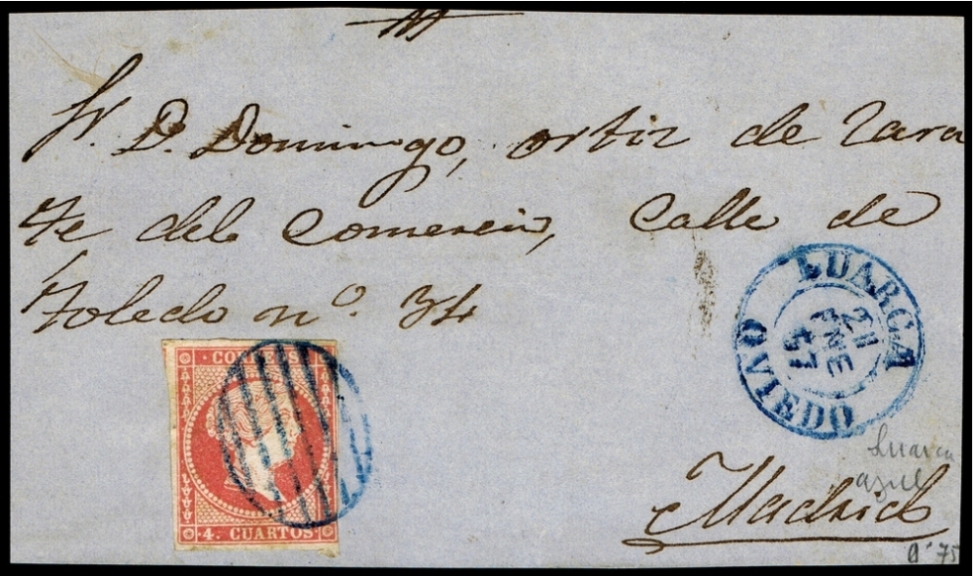 Sr. D. Domingo, ortiz de Zara
te del Comercio, Calle de
Toledo nº. 34
· CORREOS ·
· 4. CUARTOS ·
LUARCA
21
ENE
57
OVIEDO
Luarca
azul
Madrid
0'75